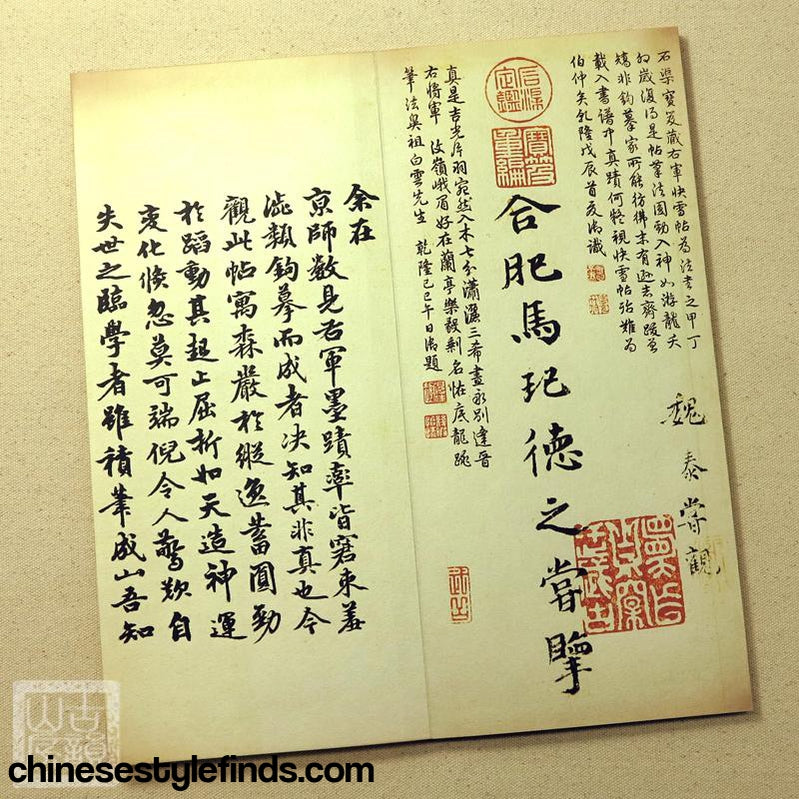 石渠寶笈藏右軍快雪帖為法書之甲丁
卯歲復得是帖筆法圓勁入神如游龍夭
矯非鉤摹家所能彷彿末有遜志齋跋曾
載入書譜中真蹟何疑視快雪帖殆難為
伯仲矣乾隆戊辰首夏御識
魏泰嘗觀
石渠定鑑
寶笈重編
合肥馬玘德之嘗擥
真是吉光片羽宛然入木七分瀟灑三希盡永別逢晉
右將軍汶嶺峨眉好在蘭亭樂毅剩名帖底龍跳
筆法奧祖白雲先生 乾隆己巳午日御題
余在
京師數見右軍墨蹟率皆窘束羞
澁類鉤摹而成者決知其非真也今
觀此帖寓森嚴於縱逸蓄圓勁
於蹈動其起止屈折如天造神運
變化倏忽莫可端倪令人驚歎自
失世之臨學者雖積筆成山吾知
chinesestylefinds.com